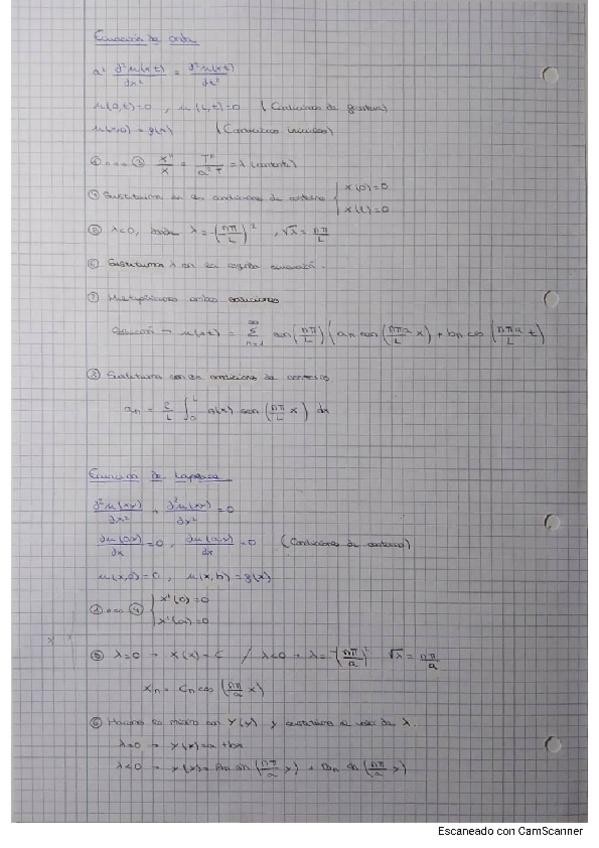 Ecuación de onda
a² d²u(x,t)/dx² = d²u(x,t)/dt²
u(0,t)=0 , u(L,t)=0 (Condiciones de )
u(x,0) = g(x) (Condiciones iniciales)
X''/X = T''/a²T = λ
④ Sustituimos en las condiciones de contorno { X(0)=0
X(L)=0
⑤ λ<0, λ = -(nπ/L)² , √λ = nπ/L
⑥ Sustituimos λ en la ecuación
⑦ Multiplicamos ambas soluciones
Solución → u(x,t) = Σ n=1 ∞ sen(nπ/L)(an sen(nπa/L x) + bn cos(nπa/L t)
⑧ Sustituimos con la condiciones de contorno
an = 2/L ∫ 0 L g(x) sen(nπ/L x) dx
Ecuación de Laplace
d²u(x,y)/dx² + d²u(x,y)/dy² = 0
du(0,y)/dx = 0 , du(a,y)/dx = 0 (Condiciones de contorno)
u(x,0)=0 , u(x,b)=g(x)
④ { X'(0)=0
X'(a)=0
⑤ λ=0 → X(x) = C / λ<0 → λ=-(nπ/a)² √λ = nπ/a
Xn = Cn cos(nπ/a x)
⑥ Hacemos lo mismo con Y(y) y sustituimos el valor de λ.
λ=0 → Y(y)=a+by
λ<0 → Y(y)= An (nπ/a y) + Bn (nπ/a y)
Escaneado con CamScanner